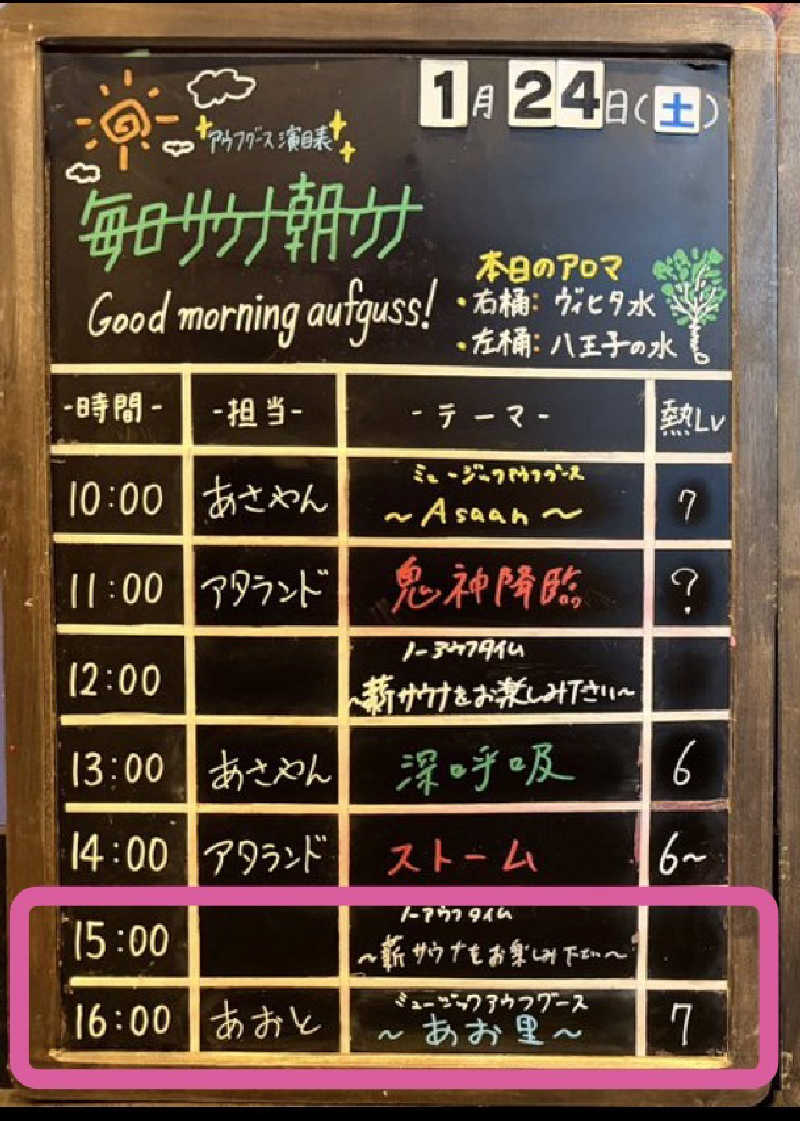 1月24日(土)
アウフグース演目表
毎日サウナ朝ウナ
Good morning aufguss!
本日のアロマ
・右桶: ヴィヒタ水
・左桶: 八王子の水
-時間- -担当- -テーマ- 熱Lv
ミュージックアウフグース
10:00 あさやん ～Asaan～ 7
11:00 アタランド 鬼神降臨 ?
ノーアウフタイム
12:00 ～薪サウナをお楽しみ下さい～
13:00 あさやん 深呼吸 6
14:00 アタランド ストーム 6～
ノーアウフタイム
15:00 ～薪サウナをお楽しみ下さい～
ミュージックアウフグース
16:00 あおと ～あお里～ 7